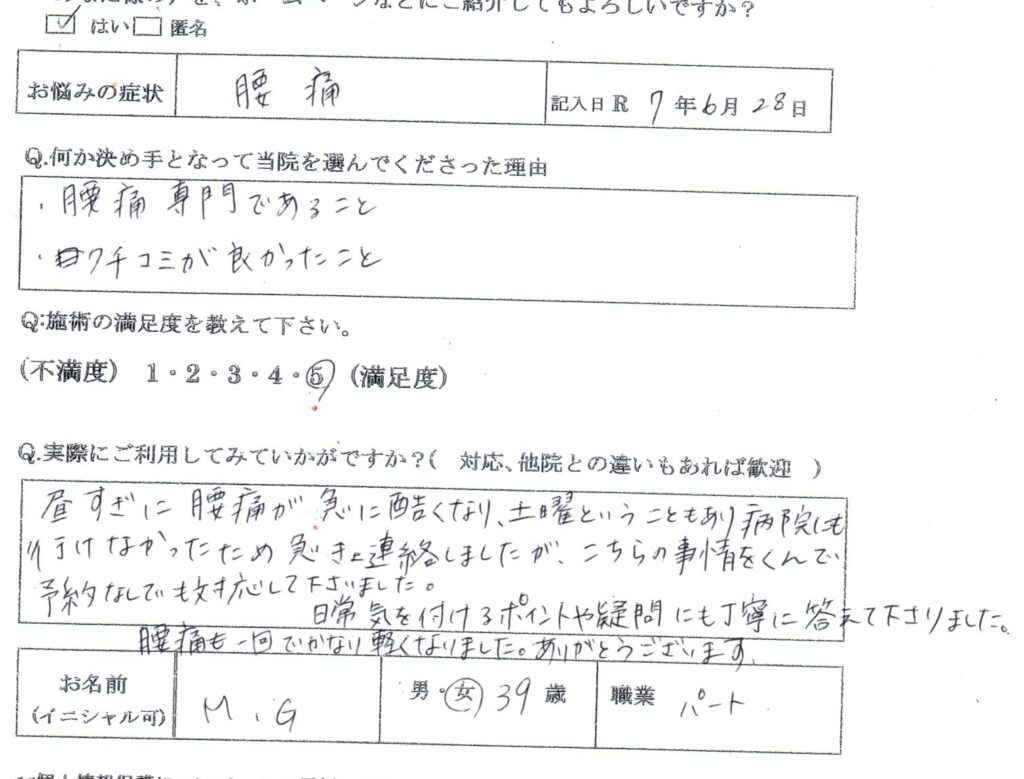 ホームページなどにご紹介してもよろしいですか？
☑ はい □ 匿名
お悩みの症状 腰痛 記入日 R 7 年 6 月 28 日
Q.何か決め手となって当院を選んでくださった理由
・腰痛専門であること
・クチコミが良かったこと
Q:施術の満足度を教えて下さい。
(不満度) 1・2・3・4・⑤ (満足度)
Q.実際にご利用してみていかがですか？( 対応、他院との違いもあれば歓迎 )
昼すぎに腰痛が急に酷くなり、土曜ということもあり病院にも
行けなかったため急きょ連絡しましたが、こちらの事情をくんで
予約なしでも対応して下さいました。
日常気を付けるポイントや疑問にも丁寧に答えて下さりました。
腰痛も一回でかなり軽くなりました。ありがとうございます。
お名前 (イニシャル可) M.G 男・女 39 歳 職業 パート